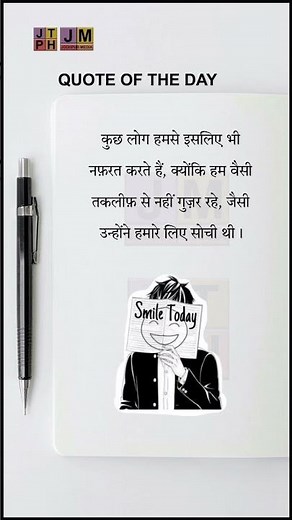 JT JM
PH
QUOTE OF THE DAY
कुछ लोग हमसे इसलिए भी
नफ़रत करते हैं, क्योंकि हम वैसी
तकलीफ़ से नहीं गुज़र रहे, जैसी
उन्होंने हमारे लिए सोची थी।
Smile Today